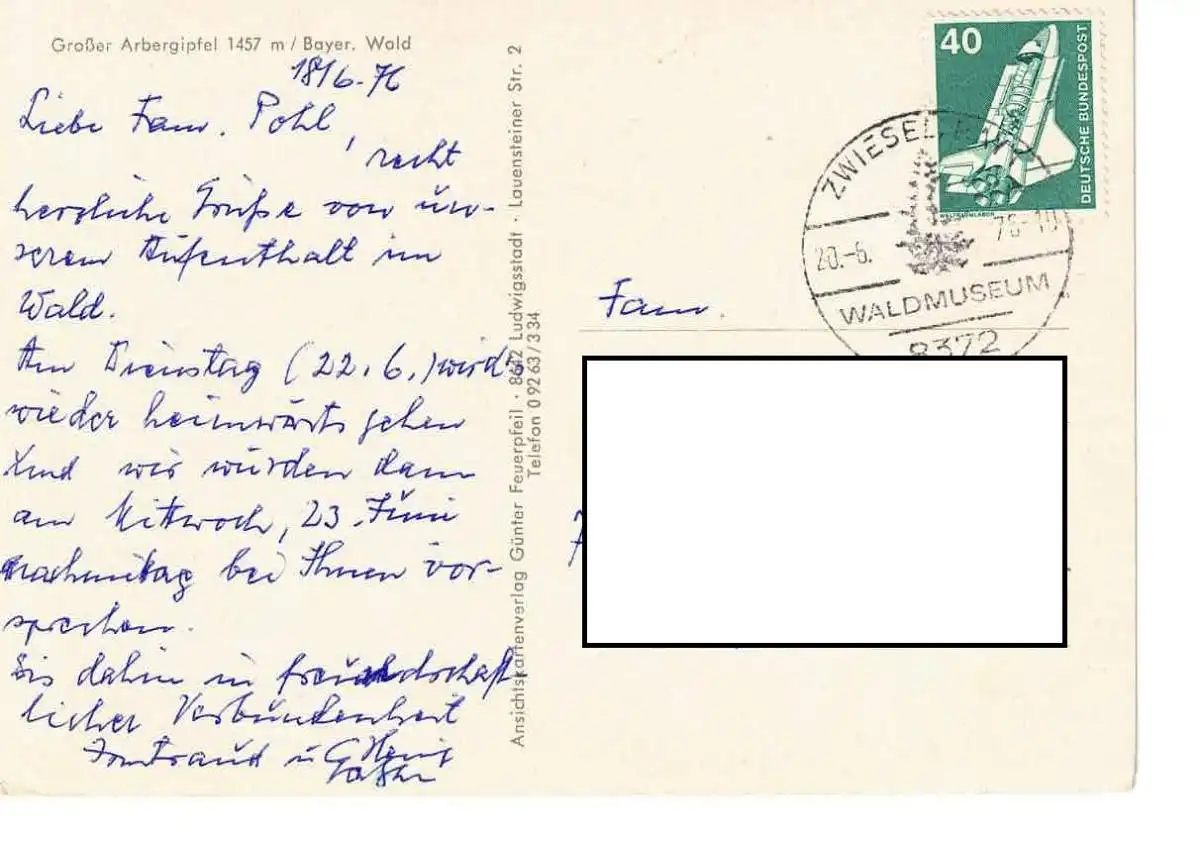 Großer Arbergipfel 1457 m / Bayer. Wald
18/6.76
Liebe Fam. Pohl,
recht
herzliche Grüße von un-
serem Aufenthalt im
Wald.
Am Dienstag (22.6.) wird's
wieder heimwärts gehen
und wir würden dann
am Mittwoch, 23. Juni
nachmittag bei Ihnen vor-
sprechen.
Bis dahin in freundschaft
licher Verbundenheit
Irmtraud u. G.
Ansichtskartenverlag Günter Feuerpfeil · 8642 Ludwigsstadt · Lauensteiner Str. 2
Telefon 0 92 63 / 3 34
40
DEUTSCHE BUNDESPOST
WELTRAUMLABOR
ZWIESEL
20.-6. 76-10
WALDMUSEUM
8372
Fam.